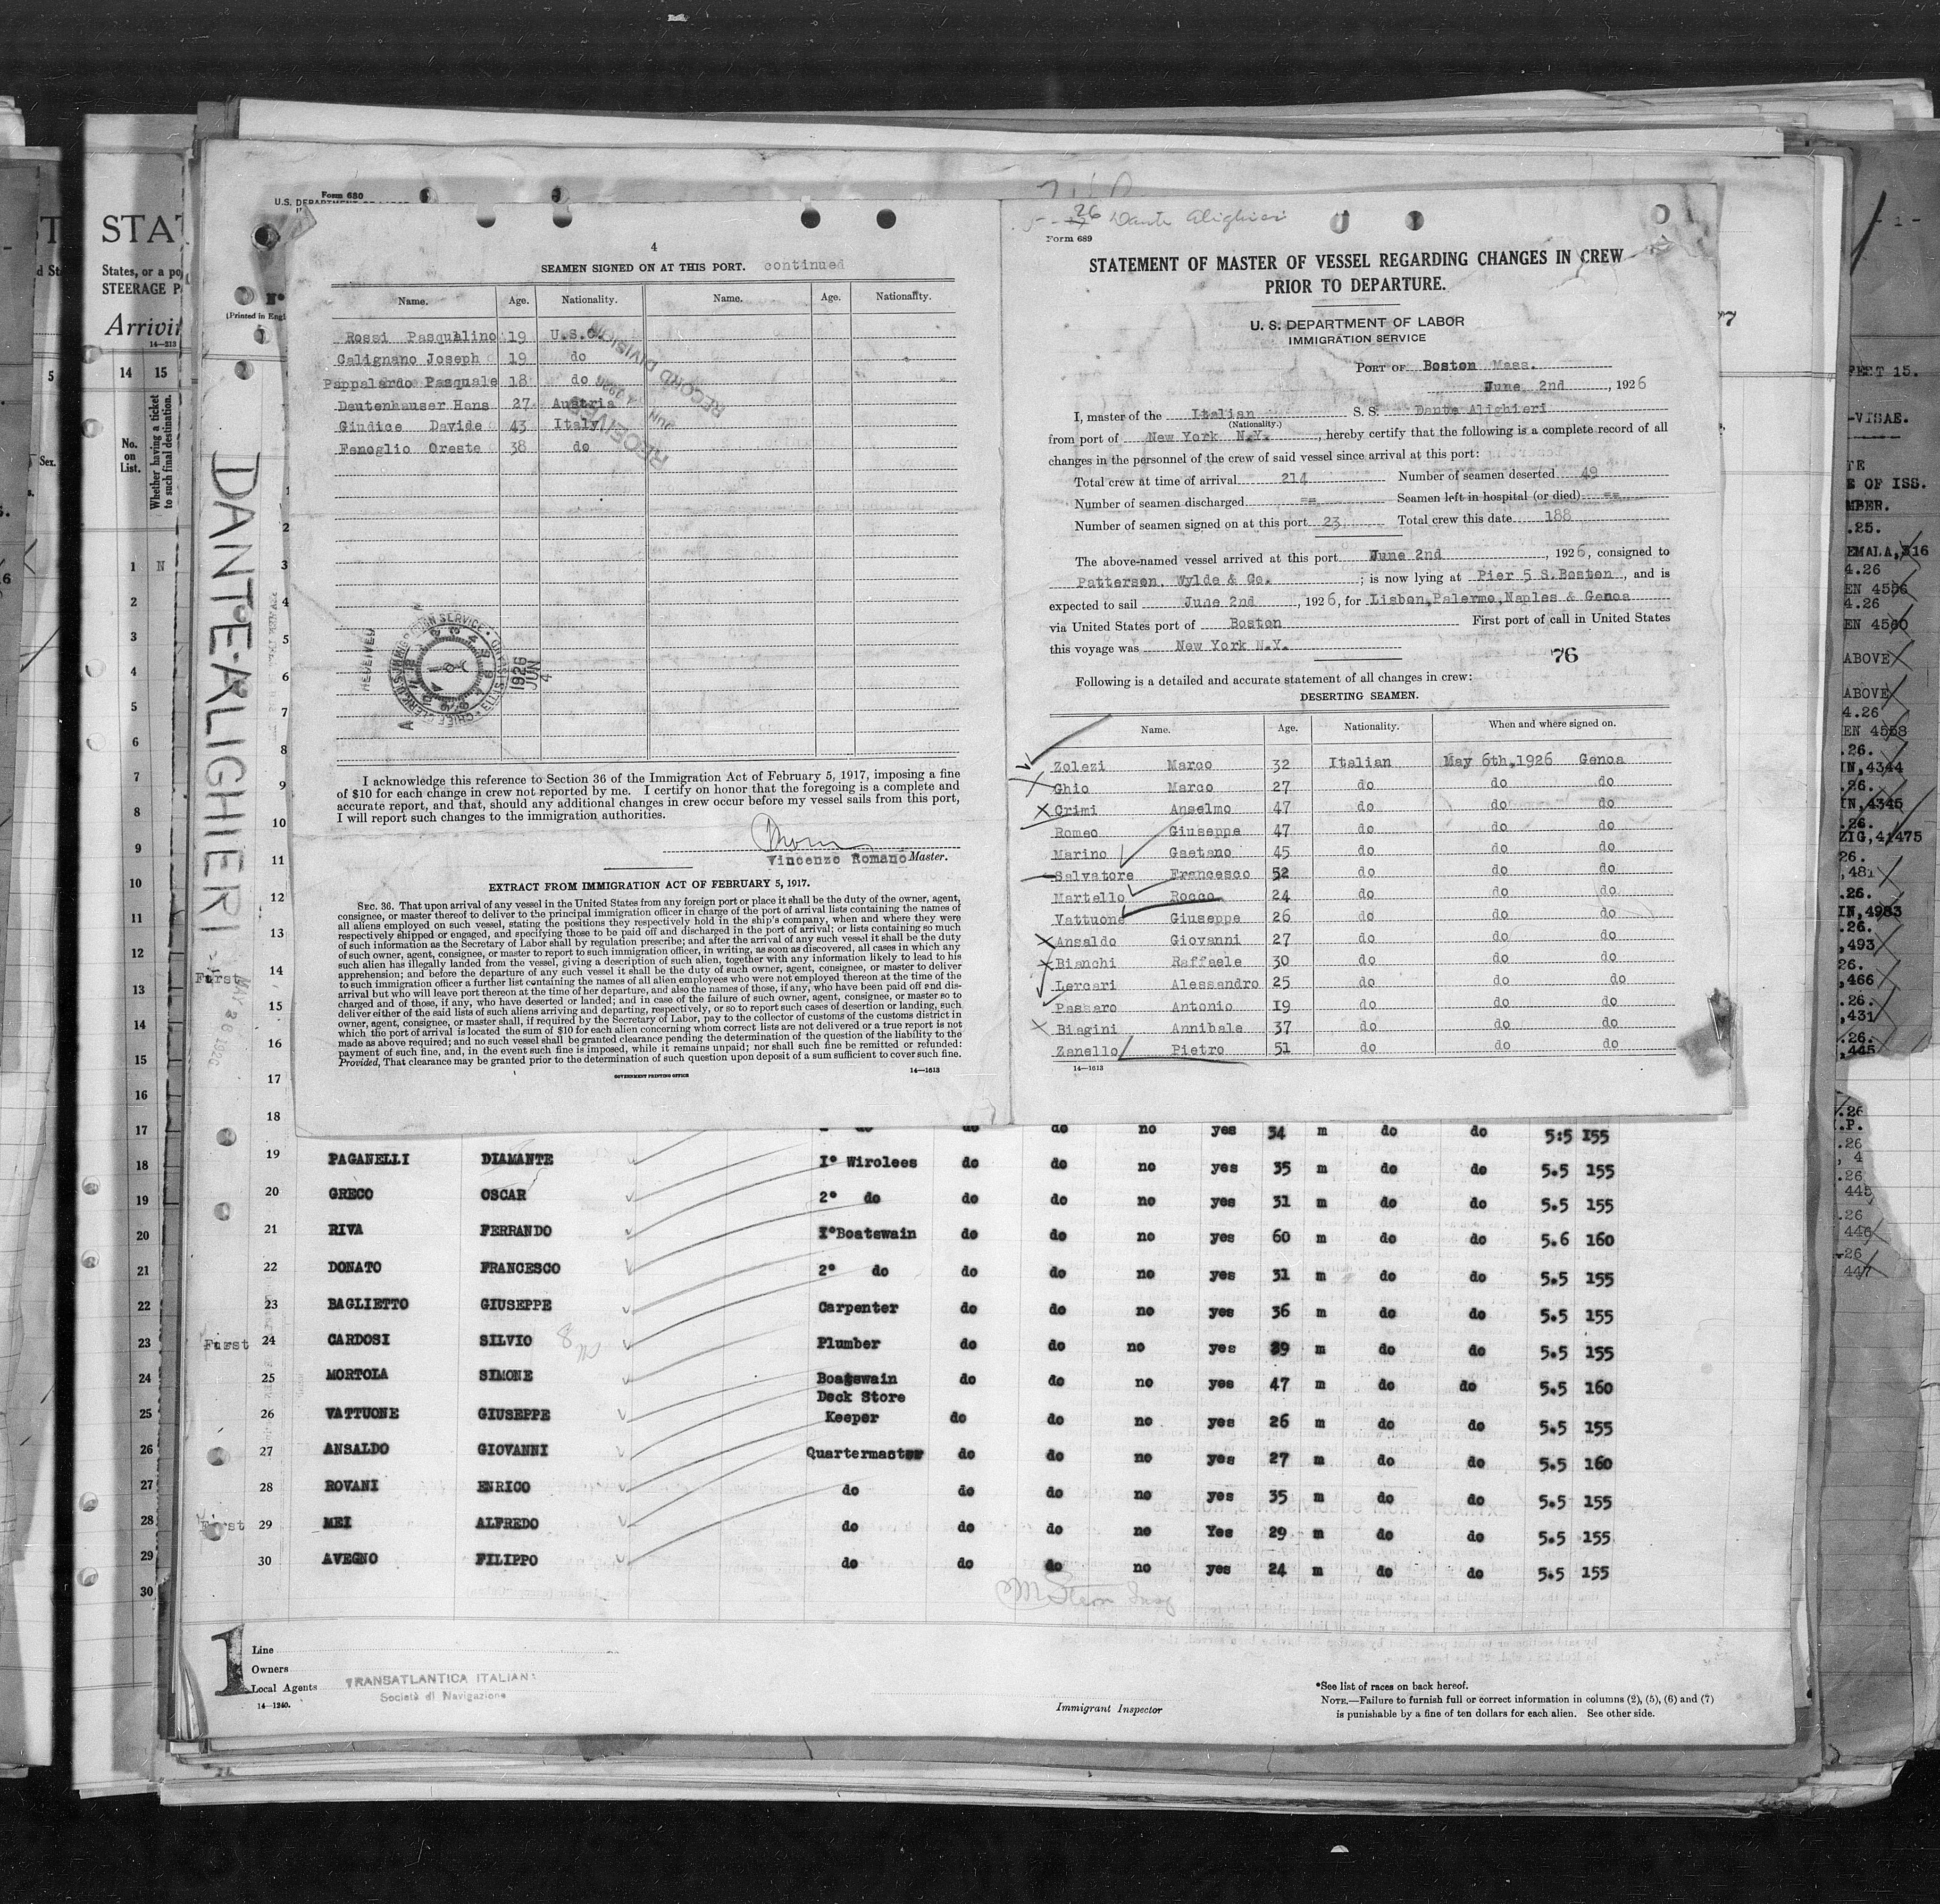 Form 680
4
SEAMEN SIGNED ON AT THIS PORT. continued
Name. Age. Nationality. Name. Age. Nationality.
Rossi Pasqualino 19 U.S.C.
Calignano Joseph 19 do
Pappalardo Pasquale 18 do
Dautenhauser Hans 27 Austria
Giudice Davide 43 Italy
Fenoglio Oreste 38 do
RECEIVED
JUN 4 1926
RECORD DIVISION
RECEIVED
1926 JUN 4
I acknowledge this reference to Section 36 of the Immigration Act of February 5, 1917, imposing a fine
of $10 for each change in crew not reported by me. I certify on honor that the foregoing is a complete and
accurate report, and that, should any additional changes in crew occur before my vessel sails from this port,
I will report such changes to the immigration authorities.
Vincenzo Romano Master.
EXTRACT FROM IMMIGRATION ACT OF FEBRUARY 5, 1917.
SEC. 36. That upon arrival of any vessel in the United States from any foreign port or place it shall be the duty of the owner, agent,
consignee, or master thereof to deliver to the principal immigration officer in charge of the port of arrival lists containing the names of
all aliens employed on such vessel, stating the positions they respectively hold in the ship's company, when and where they were
respectively shipped or engaged, and specifying those to be paid off and discharged in the port of arrival; or lists containing so much
of such information as the Secretary of Labor shall by regulation prescribe; and after the arrival of any such vessel it shall be the duty
of such owner, agent, consignee, or master to report to such immigration officer, in writing, as soon as discovered, all cases in which any
such alien has illegally landed from the vessel, giving a description of such alien, together with any information likely to lead to his
apprehension; and before the departure of any such vessel it shall be the duty of such owner, agent, consignee, or master to deliver
to such immigration officer a further list containing the names of all alien employees who were not employed thereon at the time of the
arrival but who will leave port thereon at the time of her departure, and also the names of those, if any, who have been paid off and dis-
charged and of those, if any, who have deserted or landed; and in case of the failure of such owner, agent, consignee, or master so to
deliver either of the said lists of such aliens arriving and departing, respectively, or so to report such cases of desertion or landing, such
owner, agent, consignee, or master shall, if required by the Secretary of Labor, pay to the collector of customs of the customs district in
which the port of arrival is located the sum of $10 for each alien concerning whom correct lists are not delivered or a true report is not
made as above required; and no such vessel shall be granted clearance pending the determination of the question of the liability to the
payment of such fine, and, in the event such fine is imposed, while it remains unpaid; nor shall such fine be remitted or refunded:
Provided, That clearance may be granted prior to the determination of such question upon deposit of a sum sufficient to cover such fine.
GOVERNMENT PRINTING OFFICE 14—1613
26 Dante Alighieri
Form 689
STATEMENT OF MASTER OF VESSEL REGARDING CHANGES IN CREW
PRIOR TO DEPARTURE.
U. S. DEPARTMENT OF LABOR
IMMIGRATION SERVICE
PORT OF Boston Mass.
June 2nd, 1926
I, master of the Italian S. S. Dante Alighieri
(Nationality.)
from port of New York N.Y., hereby certify that the following is a complete record of all
changes in the personnel of the crew of said vessel since arrival at this port:
Total crew at time of arrival 214 Number of seamen deserted 49
Number of seamen discharged == Seamen left in hospital (or died) ==
Number of seamen signed on at this port 23 Total crew this date 188
The above-named vessel arrived at this port June 2nd, 1926, consigned to
Patterson Wylde & Co.; is now lying at Pier 5 S.Boston, and is
expected to sail June 2nd, 1926, for Lisbon,Palermo,Naples & Genoa
via United States port of Boston First port of call in United States
this voyage was New York N.Y.
76
Following is a detailed and accurate statement of all changes in crew:
DESERTING SEAMEN.
Name. Age. Nationality. When and where signed on.
Zolezi Marco 32 Italian May 6th,1926 Genoa
Ghio Marco 27 do do do
Crimi Anselmo 47 do do do
Romeo Giuseppe 47 do do do
Marino Gaetano 45 do do do
Salvatore Francesco 52 do do do
Martello Rocco 24 do do do
Vattuone Giuseppe 26 do do do
Ansaldo Giovanni 27 do do do
Bianchi Raffaele 30 do do do
Lercari Alessandro 25 do do do
Passaro Antonio 19 do do do
Biagini Annibale 37 do do do
Zanello Pietro 51 do do do
14—1613
DANTE ALIGHIERI
do do do no yes 34 m do do 5:5 155
19 PAGANELLI DIAMANTE I° Wirolees do do no yes 35 m do do 5.5 155
20 GRECO OSCAR 2° do do do no yes 31 m do do 5.5 155
21 RIVA FERRANDO I°Boatswain do do no yes 60 m do do 5.6 160
22 DONATO FRANCESCO 2° do do do no yes 31 m do do 5.5 155
23 BAGLIETTO GIUSEPPE Carpenter do do no yes 36 m do do 5.5 155
First 24 CARDOSI SILVIO Plumber do do no yes 39 m do do 5.5 155
25 MORTOLA SIMONE Boatswain do do no yes 47 m do do 5.5 160
Deck Store
26 VATTUONE GIUSEPPE Keeper do do no yes 26 m do do 5.5 155
27 ANSALDO GIOVANNI Quartermaster do do no yes 27 m do do 5.5 160
28 ROVANI ENRICO do do do no yes 35 m do do 5.5 155
First 29 MEI ALFREDO do do do no Yes 29 m do do 5.5 155
30 AVEGNO FILIPPO do do do no yes 24 m do do 5.5 155
M Stern Insp
1
Line
Owners
Local Agents
TRANSATLANTICA ITALIANA
Società di Navigazione
14—1240.
Immigrant Inspector
*See list of races on back hereof.
NOTE.—Failure to furnish full or correct information in columns (2), (5), (6) and (7)
is punishable by a fine of ten dollars for each alien. See other side.
STAT
States, or a po
STEERAGE P
Arrivin
14—213
14 15
No. on List.
Whether having a ticket to such final destination.